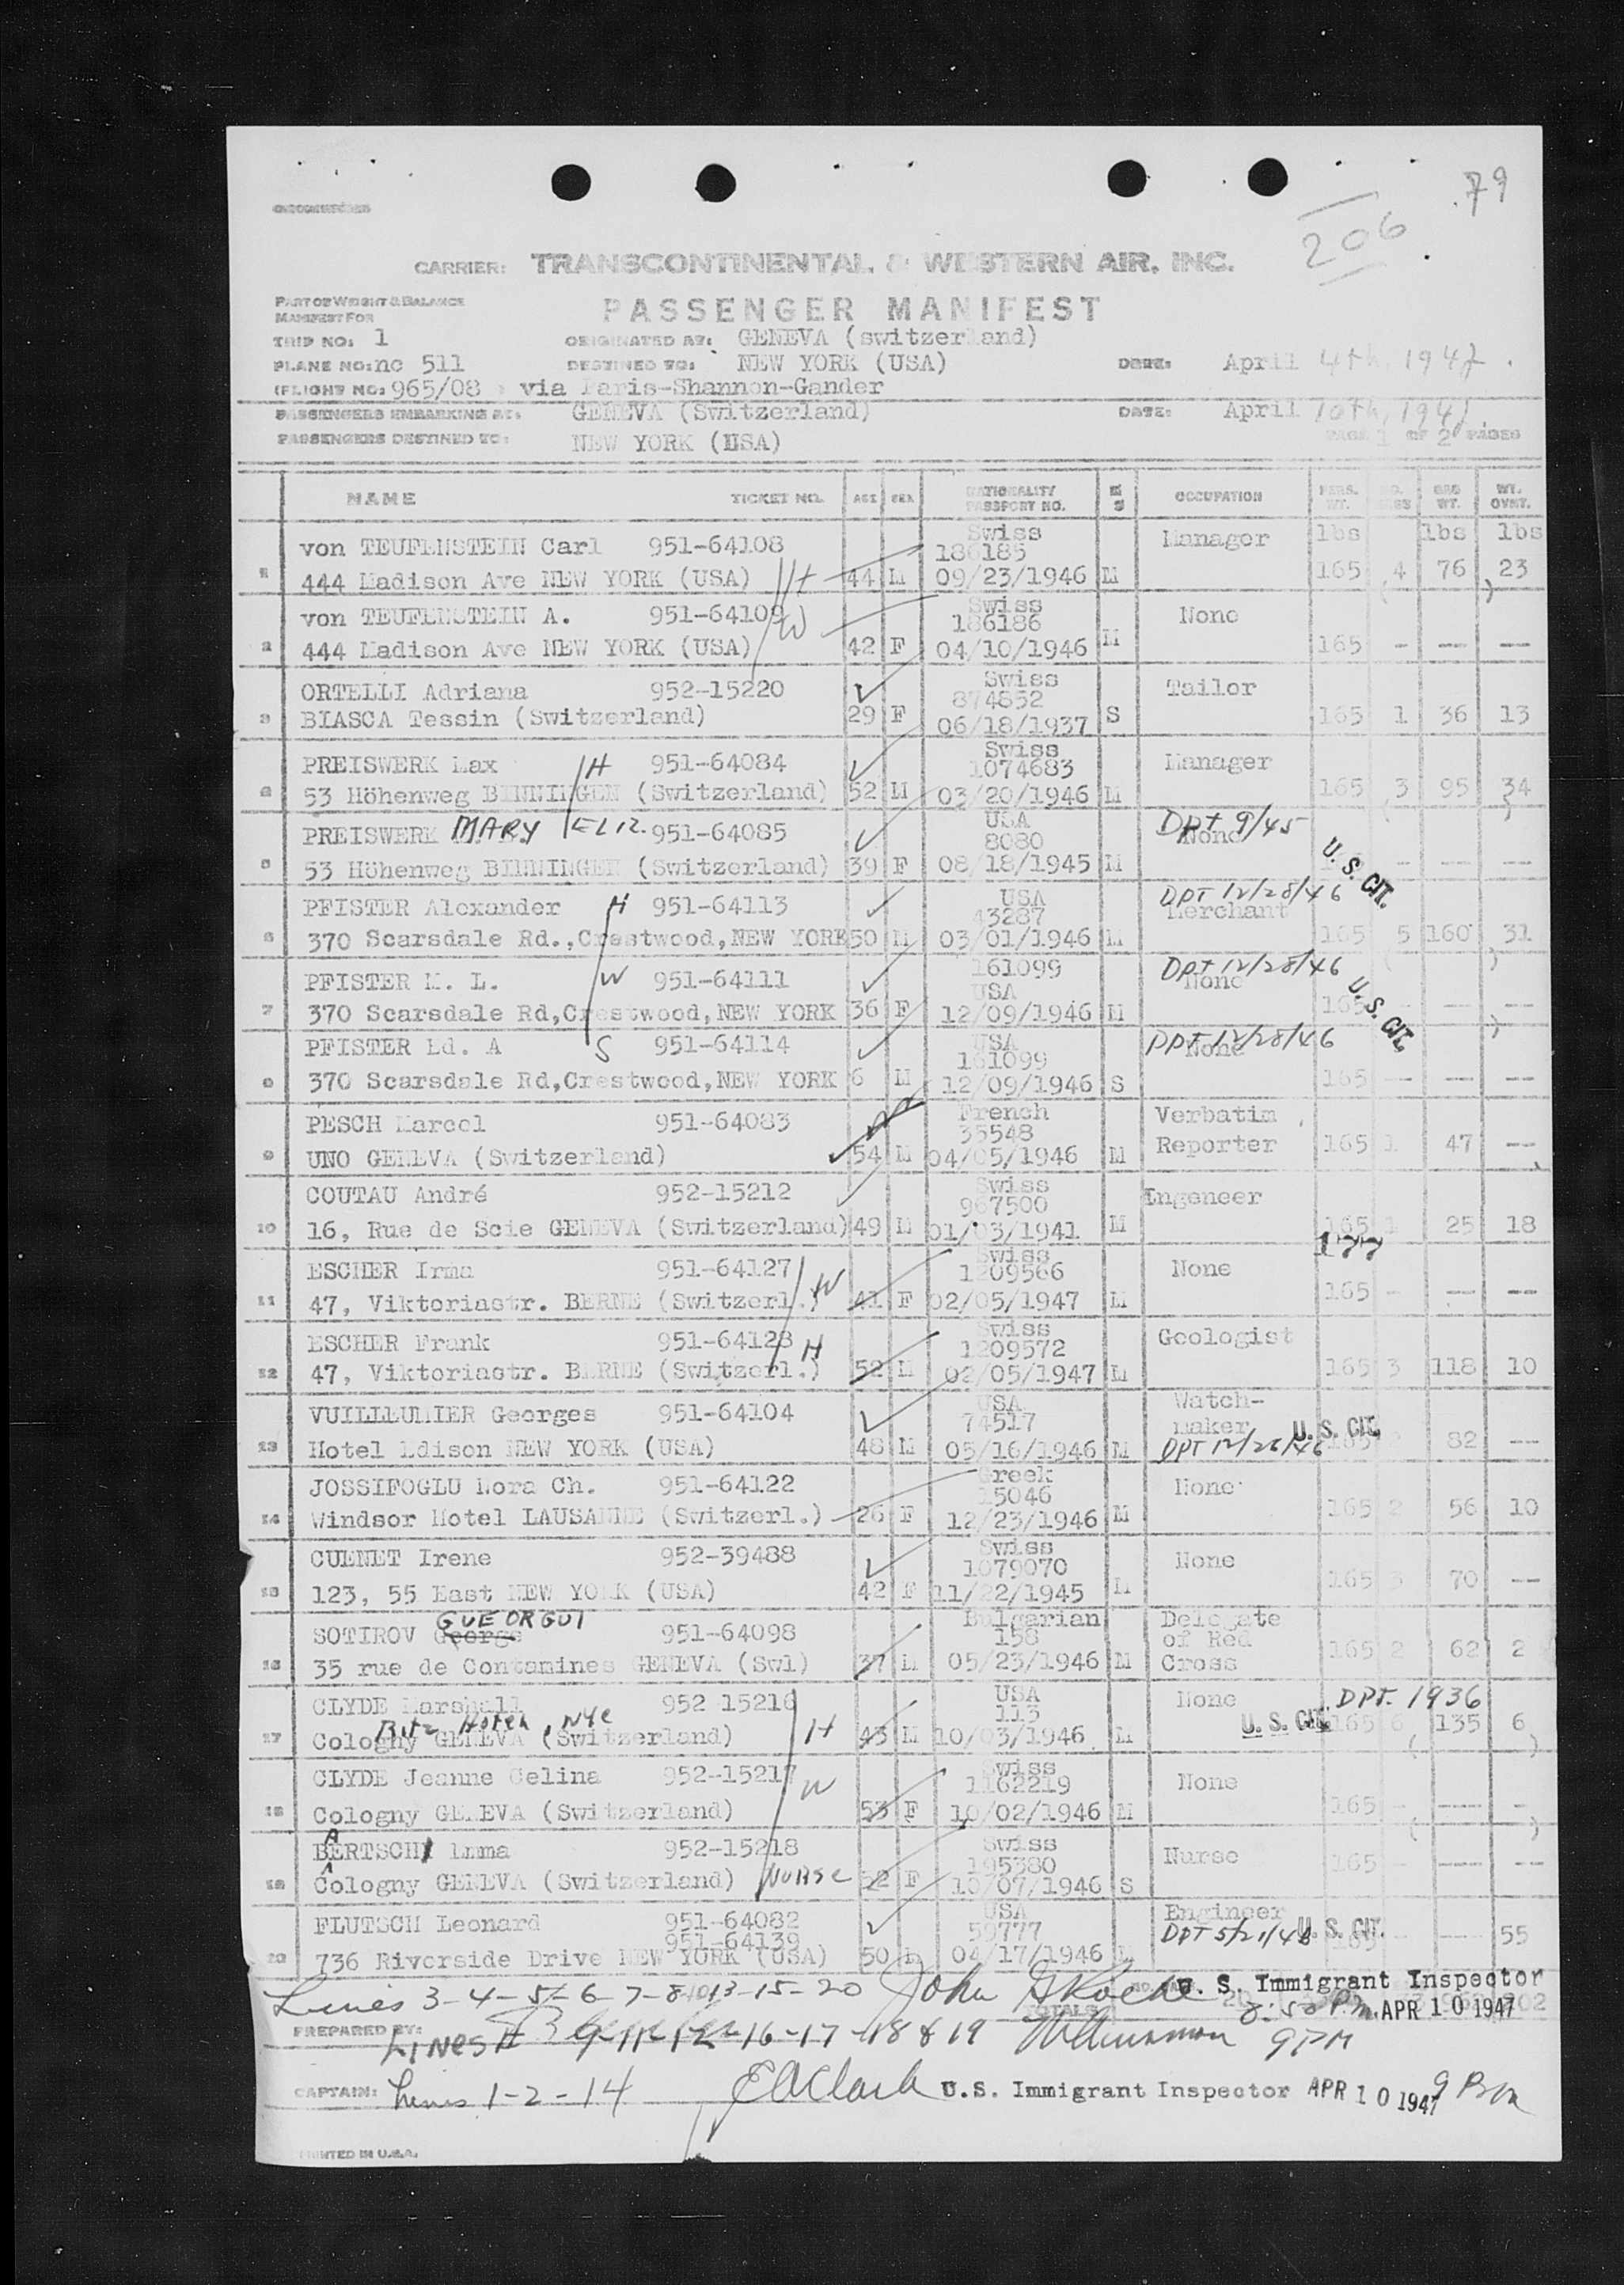 79
206
CARRIER: TRANSCONTINENTAL & WESTERN AIR, INC.
PART OF WEIGHT & BALANCE
MANIFEST FOR
PASSENGER MANIFEST
TRIP NO: 1 ORIGINATED AT: GENEVA (switzerland)
PLANE NO: nc 511 DESTINED TO: NEW YORK (USA) DATE: April 4th, 1947.
(FLIGHT NO: 965/08 ) via Paris-Shannon-Gander
PASSENGERS EMBARKING AT: GENEVA (Switzerland) DATE: April 10th, 1947
PASSENGERS DESTINED TO: NEW YORK (USA) PAGE 1 OF 2 PAGES
NAME TICKET NO. AGE SEX NATIONALITY PASSPORT NO. M S OCCUPATION PERS. WT. NO. BAGS BAG WT. WT. OVWT.
von TEUFENSTEIN Carl 951-64108 Swiss Manager lbs lbs lbs
186185
1 444 Madison Ave NEW YORK (USA) H 44 M 09/23/1946 M 165 4 76 23
von TEUFENSTEIN A. 951-64109 Swiss None
W 186186
2 444 Madison Ave NEW YORK (USA) 42 F 04/10/1946 M 165 - --- ---
ORTELLI Adriana 952-15220 Swiss Tailor
874852
3 BIASCA Tessin (Switzerland) 29 F 06/18/1937 S 165 1 36 13
PREISWERK Max H 951-64084 Swiss Manager
1074683
4 53 Höhenweg BINNINGEN (Switzerland) 52 M 03/20/1946 M 165 3 95 34
PREISWERK MARY ELIZ. 951-64085 USA DPT 9/45
8080 None
5 53 Höhenweg BINNINGEN (Switzerland) 39 F 08/18/1945 M U. S. CIT. - --- ---
PFISTER Alexander H 951-64113 USA DPT 12/28/46
43287 Merchant
6 370 Scarsdale Rd.,Crestwood,NEW YORK 50 M 03/01/1946 M 165 5 160 31
PFISTER M. L. W 951-64111 161099 DPT 12/28/46
USA None
7 370 Scarsdale Rd,Crestwood,NEW YORK 36 F 12/09/1946 M 165 U. S. CIT. --- ---
PFISTER Ed. A S 951-64114 USA DPT 12/28/46
161099 None
8 370 Scarsdale Rd,Crestwood,NEW YORK 6 M 12/09/1946 S 165 -- --- ---
PESCH Marcel 951-64083 French Verbatim
35548
9 UNO GENEVA (Switzerland) 54 M 04/05/1946 M Reporter 165 1 47 ---
COUTAU André 952-15212 Swiss Ingeneer
967500
10 16, Rue de Scie GENEVA (Switzerland) 49 M 01/03/1941 M 165 1 25 18
177
ESCHER Irma 951-64127 Swiss None
W 1209566
11 47, Viktoriastr. BERNE (Switzerl.) 41 F 02/05/1947 M 165 - --- ---
ESCHER Frank 951-64128 H Swiss Geologist
1209572
12 47, Viktoriastr. BERNE (Switzerl.) 52 M 02/05/1947 M 165 3 118 10
VUILLEUMIER Georges 951-64104 USA Watch-
74517 maker U. S. CIT.
13 Hotel Edison NEW YORK (USA) 48 M 05/16/1946 M DPT 12/26/46 165 82 ---
JOSSIFOGLU Nora Ch. 951-64122 Greek None
15046
14 Windsor Hotel LAUSANNE (Switzerl.) 26 F 12/23/1946 M 165 2 56 10
CUENET Irene 952-39488 Swiss None
1079070
15 123, 55 East NEW YORK (USA) 42 F 11/22/1945 M 165 3 70 ---
GUEORGUI
SOTIROV George 951-64098 Bulgarian Delegate
158 of Red
16 35 rue de Contamines GENEVA (Swl) 37 M 05/23/1946 M Cross 165 2 62 2
CLYDE Marshall 952 15216 USA None DPT. 1936
Ritz Hotel, NYC 113 U. S. CIT.
17 Cologny GENEVA (Switzerland) H 43 M 10/03/1946 M 165 6 135 6
CLYDE Jeanne Celina 952-15217 Swiss None
W 1162219
18 Cologny GENEVA (Switzerland) 53 F 10/02/1946 M 165 - --- -
A
BERTSCHI Emma 952-15218 Swiss Nurse
195380
19 Cologny GENEVA (Switzerland) NURSE 22 F 10/07/1946 S 165 - --- ---
FLUTSCH Leonard 951-64082 USA Engineer
951-64139 59777 DPT 5/21/46 U. S. CIT.
20 736 Riverside Drive NEW YORK (USA) 50 M 04/17/1946 165 - --- 55
Lines 3-4-5-6-7-8-10-13-15-20 U. S. Immigrant Inspector
TOTALS 8:50 P.M. APR 10 1947
PREPARED BY:
LINES # 9-11-12-16-17-18 & 19 9 PM
CAPTAIN: Lines 1-2-14 E A Clark U.S. Immigrant Inspector APR 10 1947 9 Pm
PRINTED IN U.S.A.